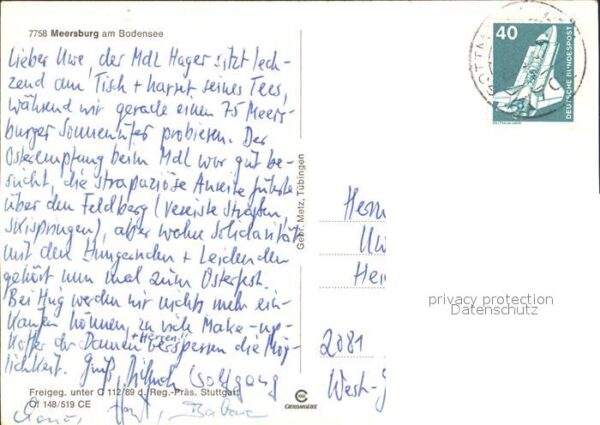 7758 Meersburg am Bodensee
Lieber Uwe, der MdL Hager sitzt lech-
zend am Tisch + harrt seines Tees,
während wir gerade einen 75 Meers-
burger Sonnenufer probieren. Der
Osterempfang beim MdL war gut be-
sucht, die strapaziöse Anreise führte
über den Feldberg (vereiste Straßen,
Skispringen), aber wahre Solidarität
mit den Hungernden + Leidenden
gehört nun mal zum Osterfest.
Bei Hug werden wir nichts mehr ein-
kaufen können, zu viele Make-up-
+ Herren
Koffer der Damen versperren die Mög-
lichkeit. Gruß, Wolfgang
Horst, Barbara
Freigeg. unter O 112/89 d. Reg.-Präs. Stuttgart
Of 148/519 CE
Gebr. Metz, Tübingen
CHROMOLUX
40
DEUTSCHE BUNDESPOST
WELTRAUMLABOR
Herrn
Hei
2081
West-
privacy protection
Datenschutz